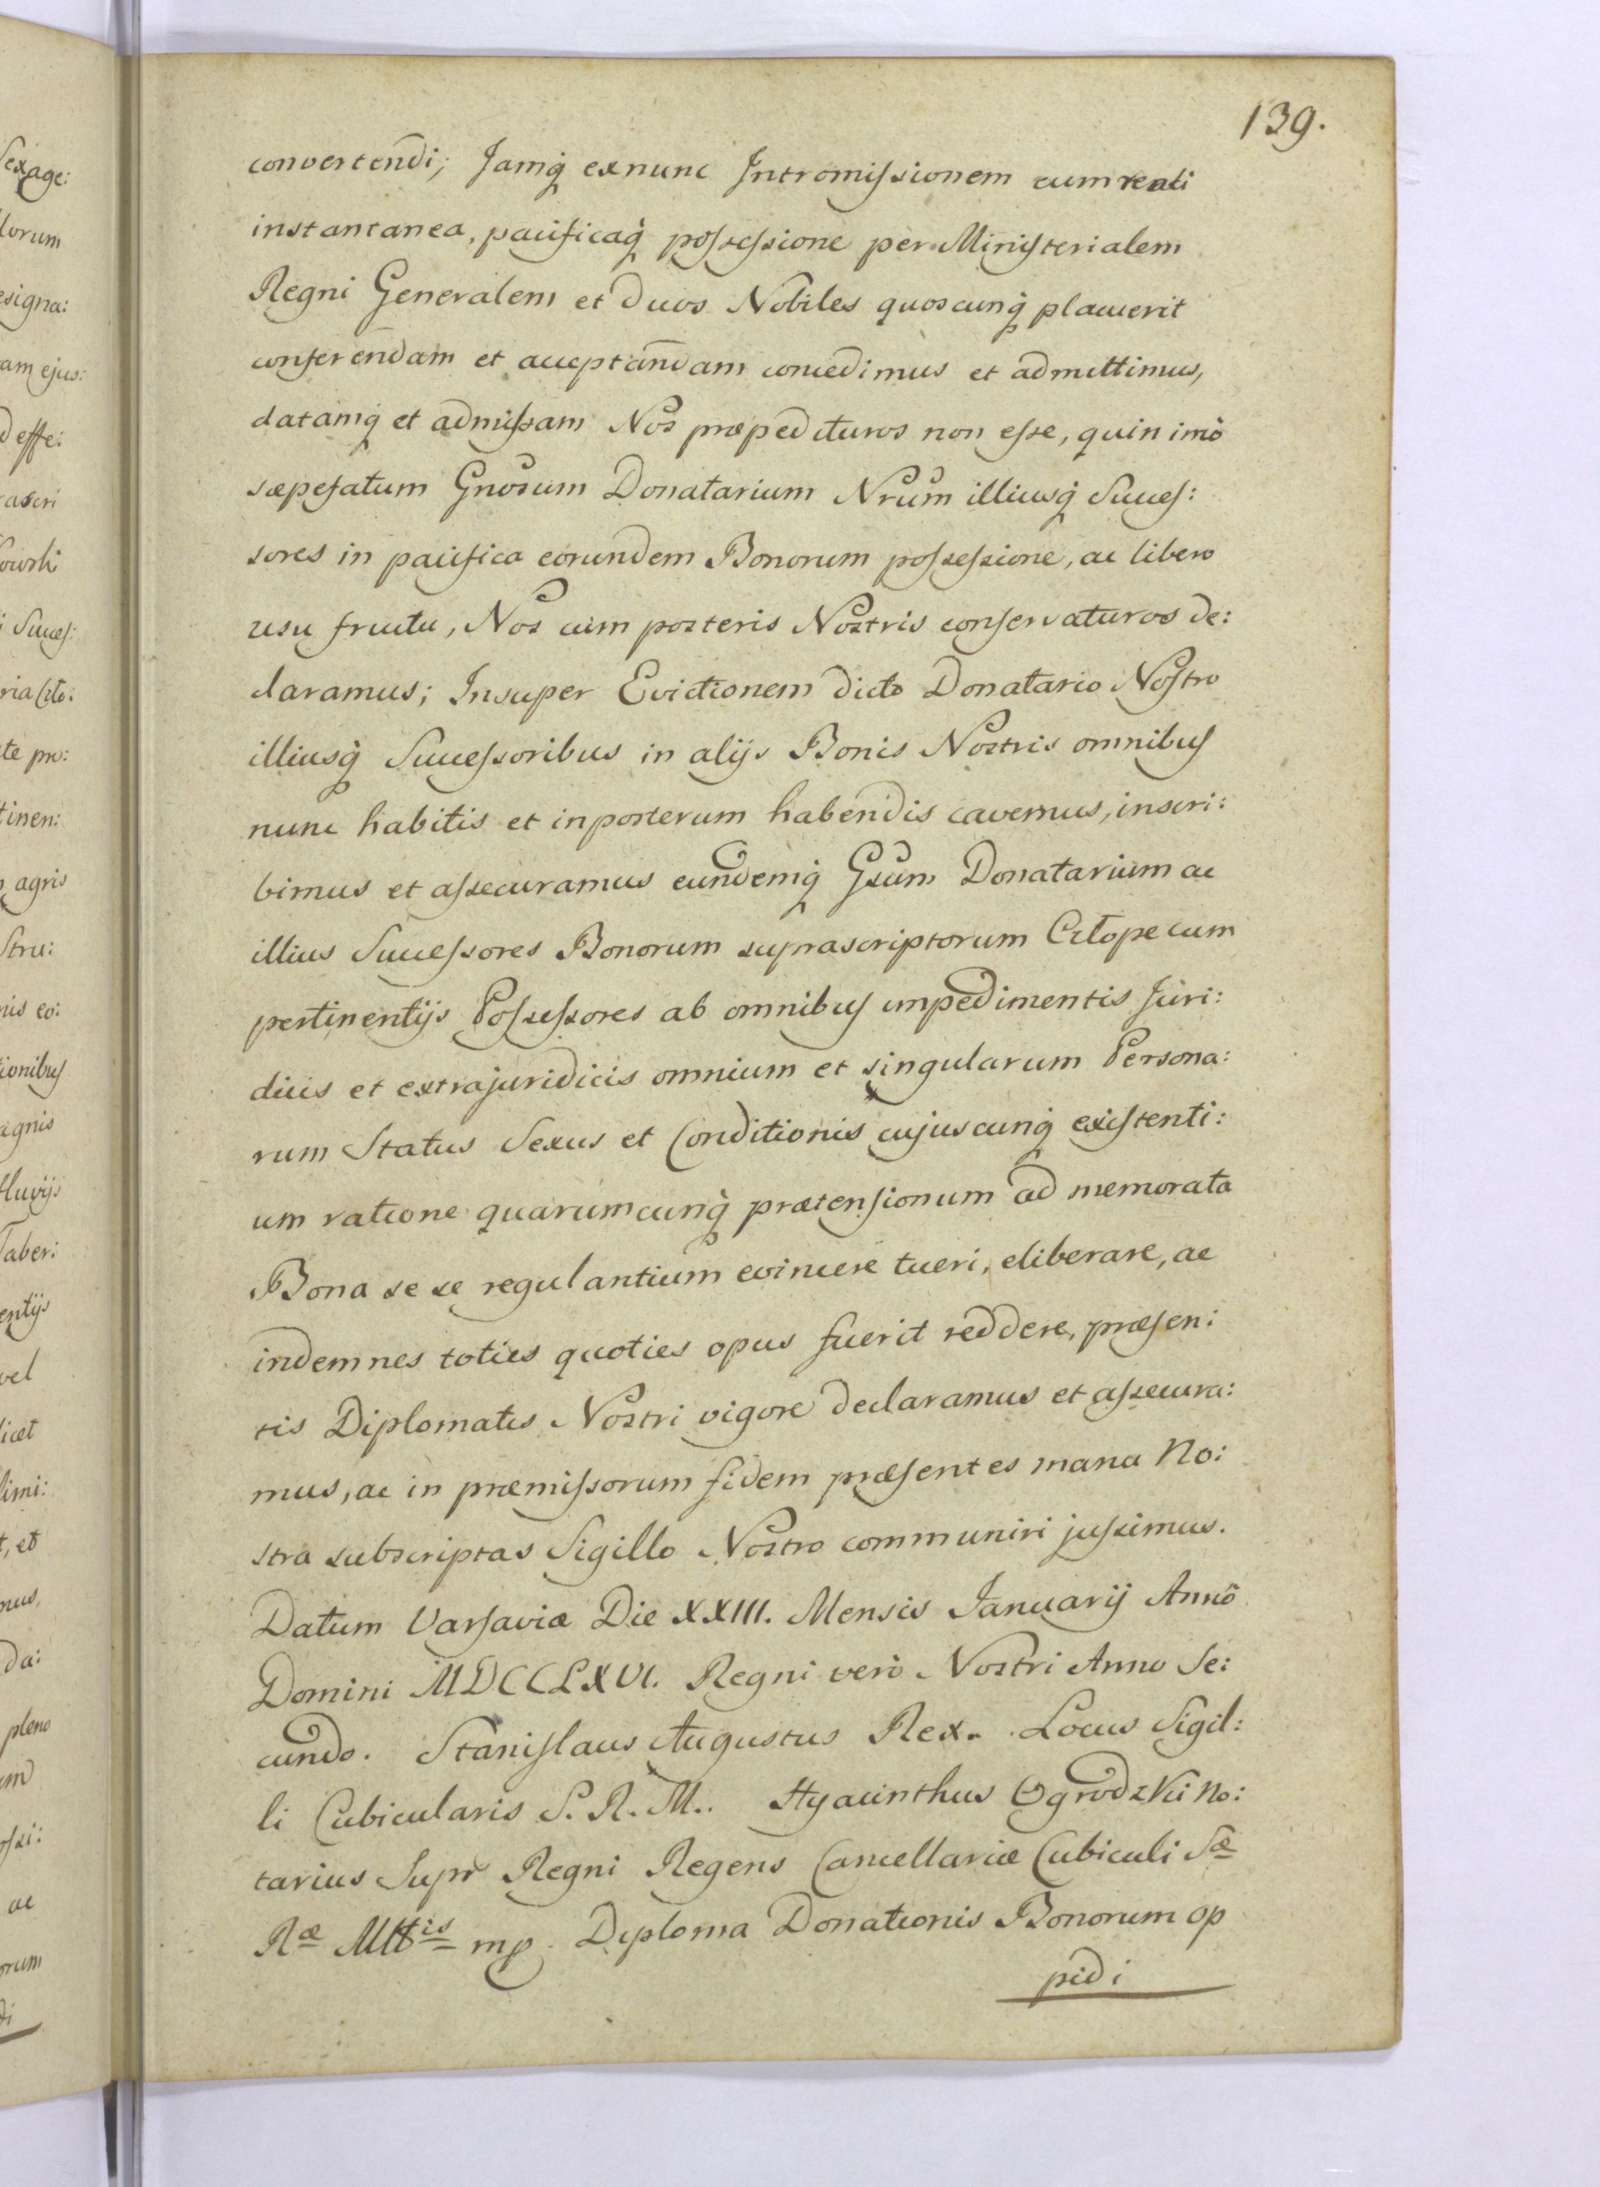 139.
convertendi; Jamq̃ exnunc Intromissionem cum reali
instantanea, pacificaq̃ possessione per Ministerialem
Regni Generalem et duos Nobiles quoscunq̃ placuerit
conferendam et acceptandam concedimus et admittimus,
datamq̃ et admissam Nos præpedituros non esse, quin imò
sæpefatum Gnosum Donatarium Nrum illiusq̃ Succes:
sores in pacifica eorundem Bonorum possessione, ac libero
usu fructu, Nos cum posteris Nostris conservaturos de:
claramus; Insuper Evictionem dicto Donatario Nostro
illiusq̃ Successoribus in alijs Bonis Nostris omnibus
nunc habitis et inposterum habendis cavemus, inscri:
bimus et assecuramus eundemq̃ Gsum Donatarium ac
illius Successores Bonorum suprascriptorum Citope cum
pertinentijs Possessores ab omnibus impedimentis Juri:
dicis et extrajuridicis omnium et singularum Persona:
rum Status Sexus et Conditionis cujuscunq̃ existenti:
um ratione quarumcunq̃ prætensionum ad memorata
Bona se se regulantium evincere tueri, eliberare, ac
indemnes toties quoties opus fuerit reddere, præsen:
tis Diplomatis Nostri vigore declaramus et assecura:
mus, ac in præmissorum fidem præsentes mana No:
stra subscriptas Sigillo Nostro communiri jussimus.
Datum Varsaviæ Die XXIII. Mensis Januarij Annô
Domini MDCCLXVI. Regni verò Nostri Anno Se:
cundo. Stanislaus Augustus Rex. Locus Sigil:
li Cubicularis S. R. M.. Hyacinthus Ogrodzki No:
tarius Supr Regni Regens Cancellariæ Cubiculi Sæ
Ræ Mttis mp. Diploma Donationis Bonorum op
pidi